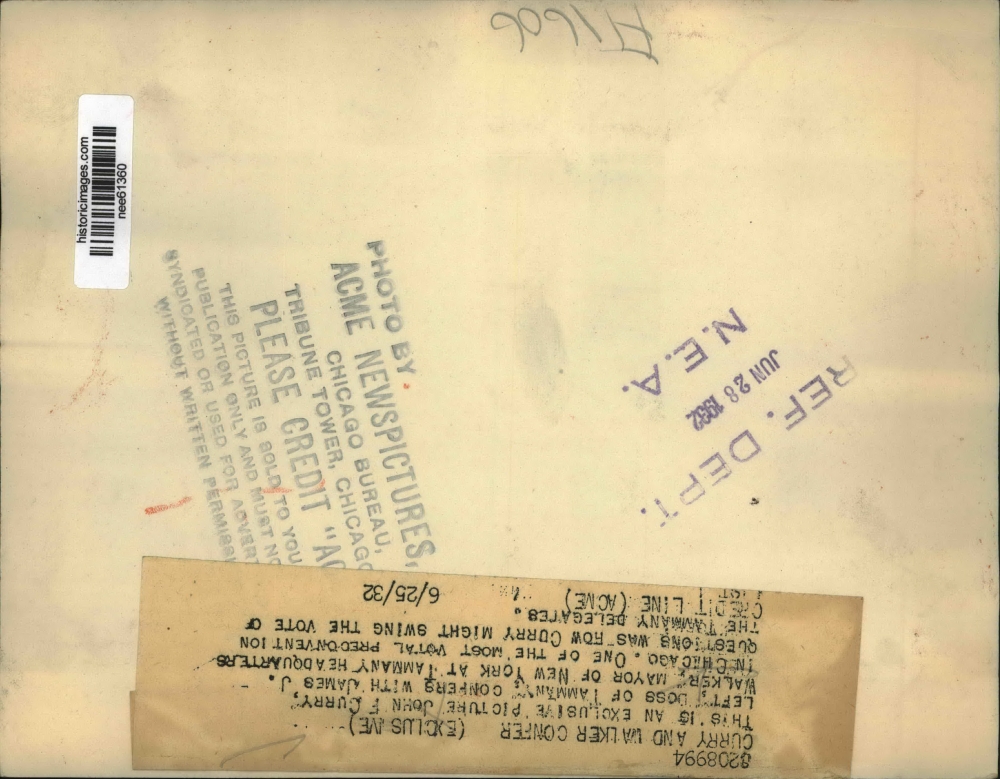 #1606
historicimages.com
nee61360
PHOTO BY
ACME NEWSPICTURES,
CHICAGO BUREAU,
TRIBUNE TOWER, CHICAGO
PLEASE CREDIT "AC
THIS PICTURE IS SOLD TO YOU
PUBLICATION ONLY AND MUST NO
SYNDICATED OR USED FOR ADVERT
WITHOUT WRITTEN PERMISSI
REF. DEPT.
JUN 28 1932
N.E.A.
8208994
CURRY AND WALKER CONFER (EXCLUSIVE)
THIS IS AN EXCLUSIVE PICTURE JOHN F CURRY,
LEFT, BOSS OF TAMMANY, CONFERS WITH JAMES J.
WALKER, MAYOR OF NEW YORK AT TAMMANY HEADQUARTERS
IN CHICAGO. ONE OF THE MOST VOTAL PRECONVENTION
QUESTIONS WAS HOW CURRY MIGHT SWING THE VOTE OF
THE TAMMANY DELEGATES.
CREDIT LINE (ACME) 6/25/32